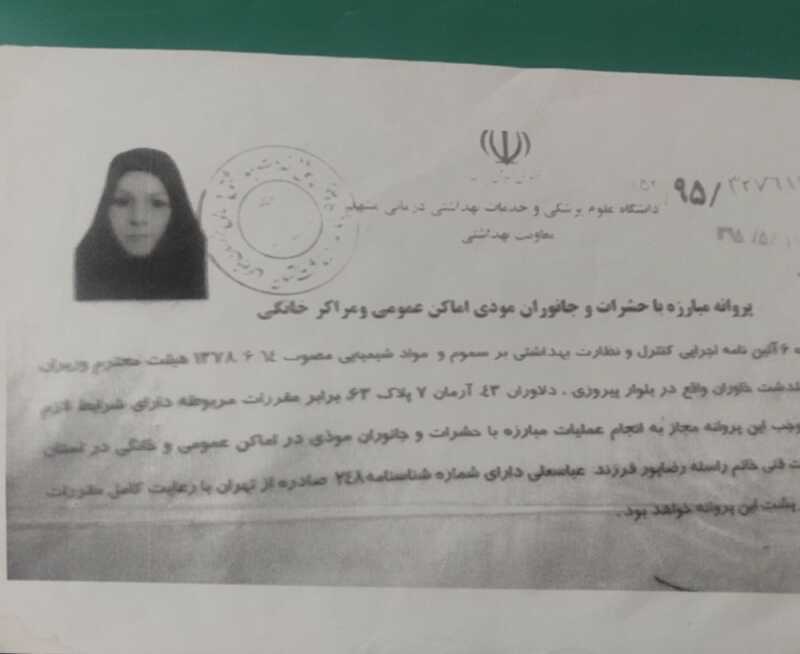 ۹۵/۳۲۷۶۱
دانشگاه علوم پزشکی و خدمات بهداشتی درمانی مشهد
۱۳۹۵/۵/
معاونت بهداشتی
پروانه مبارزه با حشرات و جانوران موذی اماکن عمومی ومراکز خانگی
۶ آئین نامه اجرایی کنترل و نظارت بهداشتی بر سموم و مواد شیمیایی مصوب ۱۴ ۶ ۱۳۷۸ هیئت محترم وزیران
خاوران واقع در بلوار پیروزی ، دلاوران ۴۳، آرمان ۷ پلاک ۶۳، برابر مقررات مربوطه دارای شرایط لازم
این پروانه مجاز به انجام عملیات مبارزه با حشرات و جانوران موذی در اماکن عمومی و خانگی در استان
فنی خانم راسله رضاپور فرزند عباسعلی دارای شماره شناسنامه ۲۴۸ صادره از تهران با رعایت کامل مقررات
پشت این پروانه خواهد بود .